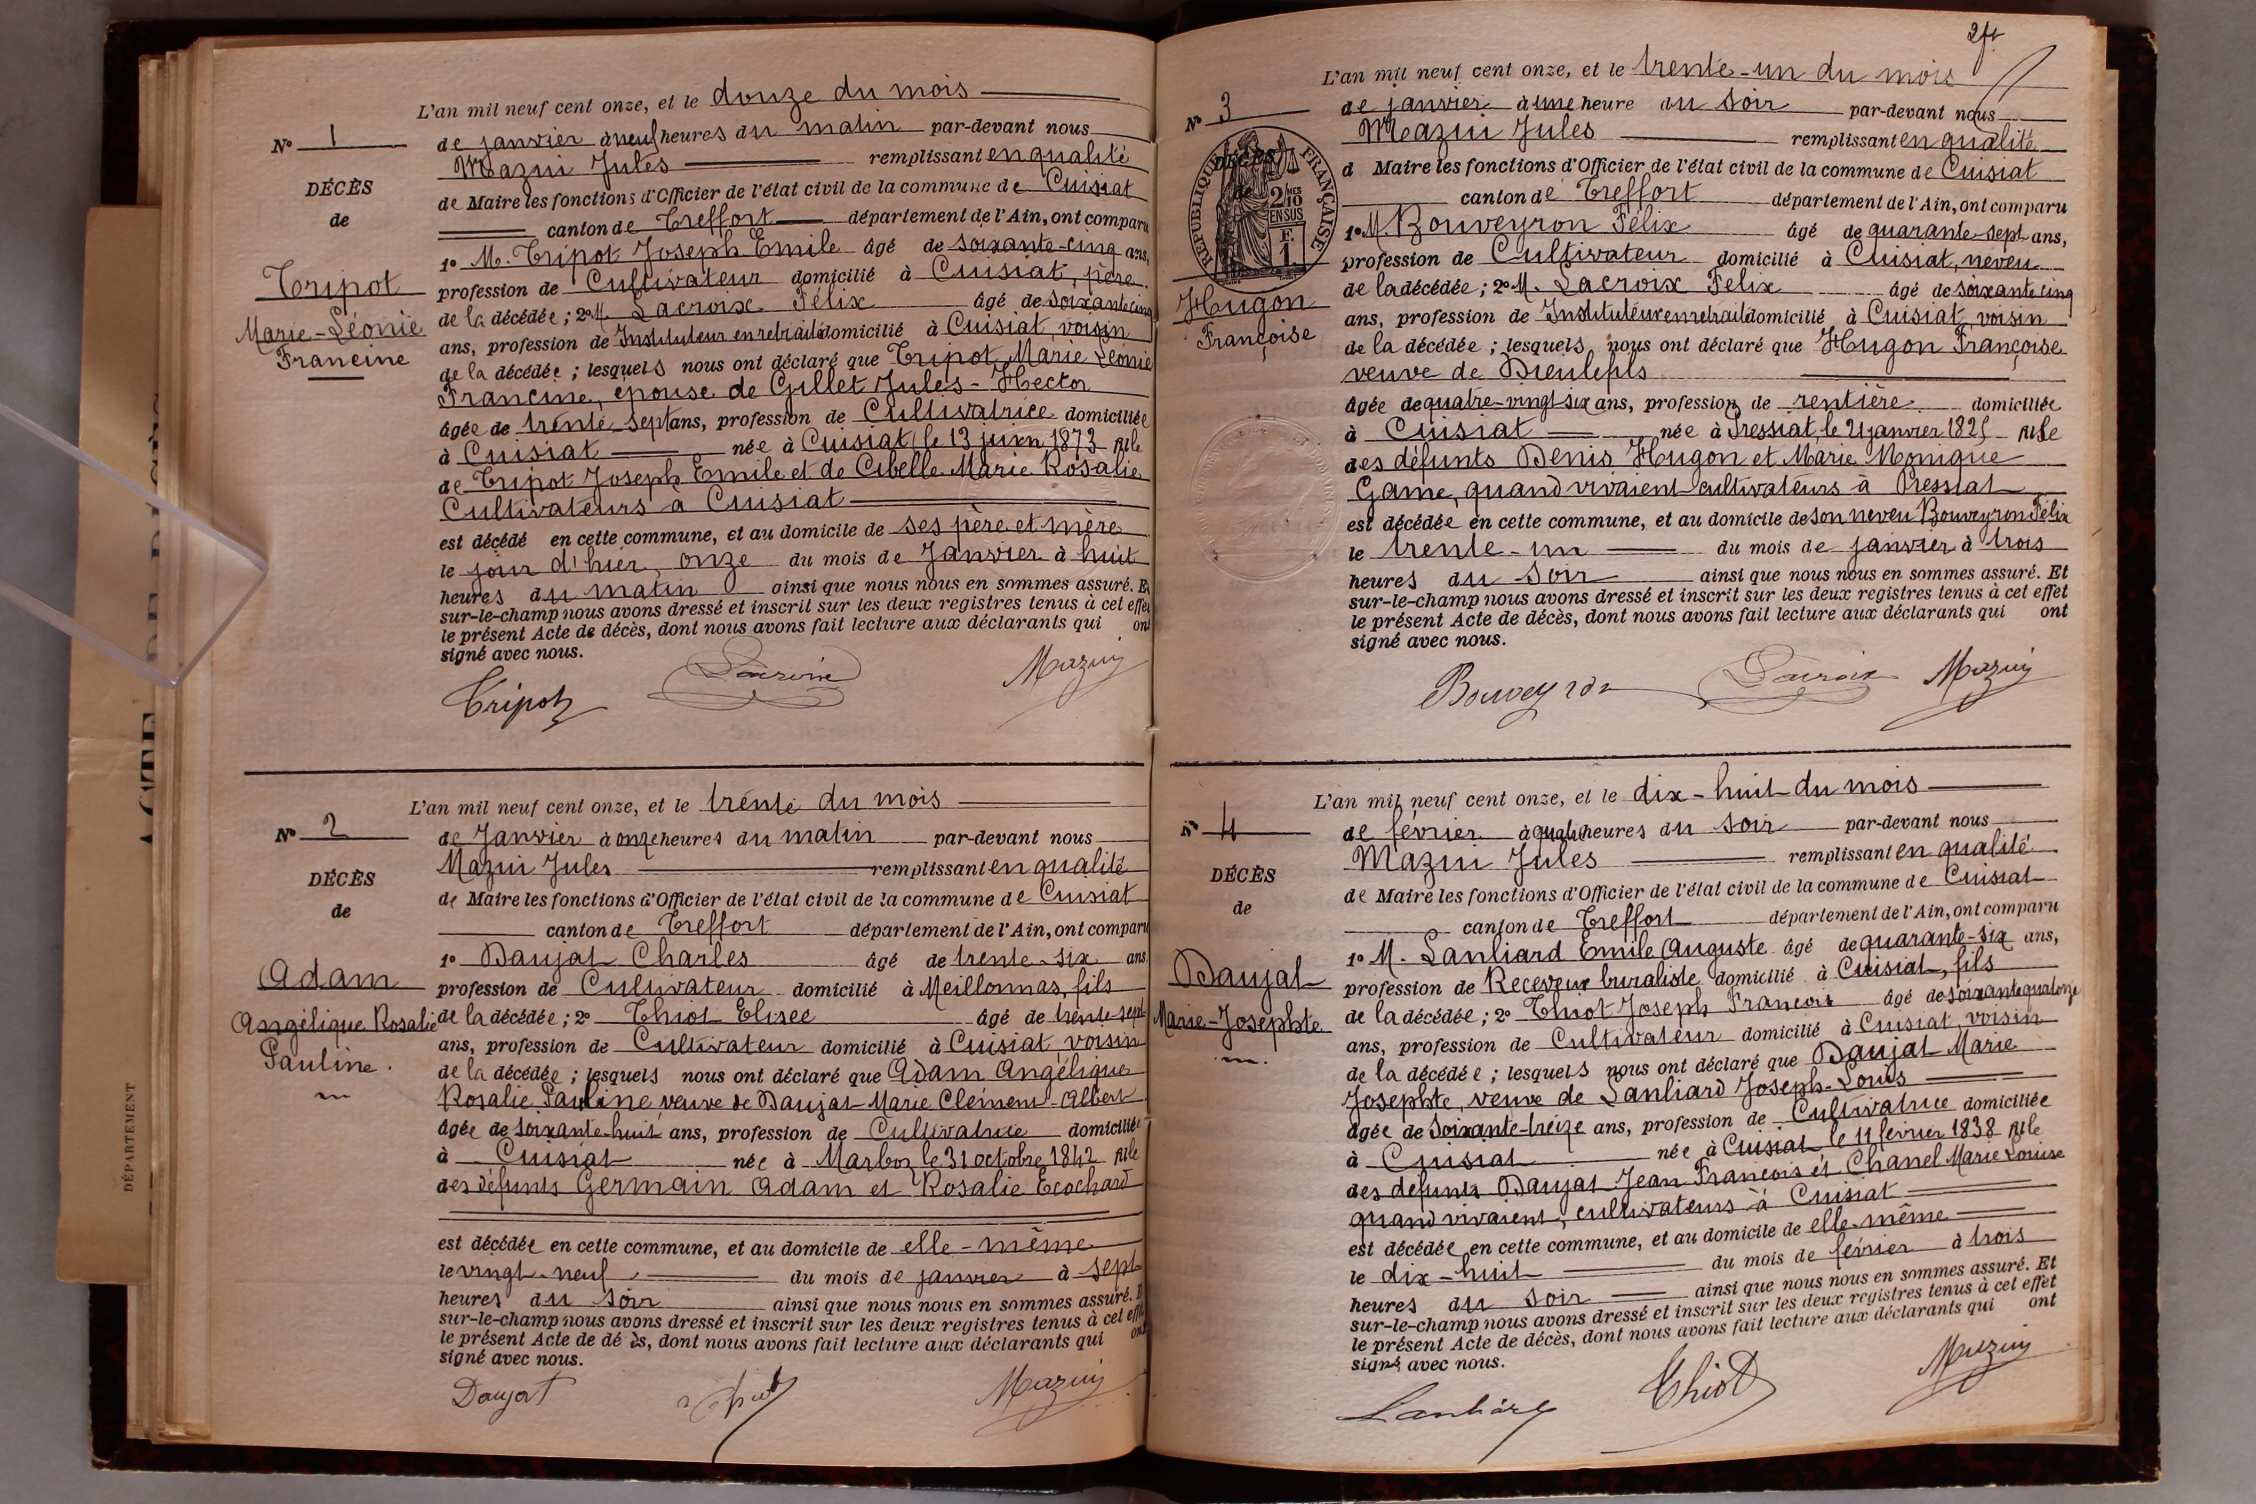 L'an mil neuf cent onze, et le douze du mois
N° 1
de janvier à neuf heures du matin par-devant nous
Mazui Jules remplissant en qualité
DÉCÈS
de Maire les fonctions d'Officier de l'état civil de la commune de Cuisiat
de
canton de Treffort département de l'Ain, ont comparu
1° M. Tripot Joseph Emile âgé de soixante-cinq ans,
Tripot
Marie-Léonie
Francine
profession de Cultivateur domicilié à Cuisiat, père
de la décédée ; 2° M. Lacroix Félix âgé de soixante cinq
ans, profession de Instituteur en retraite domicilié à Cuisiat, voisin
de la décédée ; lesquels nous ont déclaré que Tripot, Marie Léonie
Francine, épouse de Gillet Jules-Hector
âgée de trente sept ans, profession de Cultivatrice domiciliée
à Cuisiat née à Cuisiat, le 13 juin 1873 fille
de Tripot Joseph Emile et de Cibelle Marie Rosalie
Cultivateurs à Cuisiat
est décédé en cette commune, et au domicile de ses père et mère
le jour d'hier, onze du mois de Janvier à huit
heures du matin ainsi que nous nous en sommes assuré. Et
sur-le-champ nous avons dressé et inscrit sur les deux registres tenus à cet effet
le présent Acte de décès, dont nous avons fait lecture aux déclarants qui ont
signé avec nous.
Tripot Lacroix Mazuy
L'an mil neuf cent onze, et le trente du mois
N° 2
de Janvier à onze heures du matin par-devant nous
Mazui Jules remplissant en qualité
DÉCÈS
de Maire les fonctions d'Officier de l'état civil de la commune de Cuisiat
de
canton de Treffort département de l'Ain, ont comparu
1° Daujat Charles âgé de trente-six ans
Adam
Angélique Rosalie
Pauline.
profession de Cultivateur domicilié à Meillonnas, fils
de la décédée ; 2° Thiot Elisée âgé de trente-sept
ans, profession de Cultivateur domicilié à Cuisiat, voisin
de la décédée ; lesquels nous ont déclaré que Adam Angélique
Rosalie Pauline, veuve de Daujat Marie Clément-Albert
âgée de soixante-huit ans, profession de Cultivatrice domiciliée
à Cuisiat née à Marboz le 31 octobre 1842 fille
des défunts Germain Adam et Rosalie Ecochard
est décédée en cette commune, et au domicile de elle-même
le vingt-neuf du mois de janvier à sept
heures du soir ainsi que nous nous en sommes assuré. E
sur-le-champ nous avons dressé et inscrit sur les deux registres tenus à cet effet
le présent Acte de décès, dont nous avons fait lecture aux déclarants qui ont
signé avec nous.
Daujat Mazuy
DÉPARTEMENT
L'an mil neuf cent onze, et le trente-un du mois
N° 3
de janvier à une heure du soir par-devant nous
Mazui Jules remplissant en qualité
DÉCÈS
de
RÉPUBLIQUE FRANÇAISE
2/10 EN SUS
F. 1.
d Maire les fonctions d'Officier de l'état civil de la commune de Cuisiat
canton de Treffort département de l'Ain, ont comparu
1° M. Bouveyron Félix âgé de quarante-sept ans,
profession de Cultivateur domicilié à Cuisiat, neveu
Hugon
Françoise
de la décédée ; 2° M. Lacroix Félix âgé de soixante cinq
ans, profession de Instituteur en retraite domicilié à Cuisiat, voisin
de la décédée ; lesquels nous ont déclaré que Hugon Françoise
veuve de
âgée de quatre-vingt-six ans, profession de rentière domiciliée
à Cuisiat née à Pressiat, le 21 janvier 1825 fille
des défunts Denis Hugon et Marie Monique
Game, quand vivaient cultivateurs à Pressiat
est décédée en cette commune, et au domicile de son neveu Bouveyron Félix
le trente-un du mois de janvier à trois
heures du soir ainsi que nous nous en sommes assuré. Et
sur-le-champ nous avons dressé et inscrit sur les deux registres tenus à cet effet
le présent Acte de décès, dont nous avons fait lecture aux déclarants qui ont
signé avec nous.
Bouveyron Lacroix Mazuy
L'an mil neuf cent onze, et le dix-huit du mois
N° 4
de février à quatre heures du soir par-devant nous
Mazui Jules remplissant en qualité
DÉCÈS
de Maire les fonctions d'Officier de l'état civil de la commune de Cuisiat
de
canton de Treffort département de l'Ain, ont comparu
1° M. Lanliard Emile Auguste âgé de quarante-six ans,
Daujat
Marie-Josephte
profession de Receveur buraliste domicilié à Cuisiat, fils
de la décédée ; 2° Thiot Joseph François âgé de soixante quatorze
ans, profession de Cultivateur domicilié à Cuisiat, voisin
de la décédée ; lesquels nous ont déclaré que Daujat Marie
Josephte, veuve de Lanliard Joseph-Louis
âgée de soixante-treize ans, profession de Cultivatrice domiciliée
à Cuisiat née à Cuisiat le 11 février 1838 fille
des défunts Daujat Jean François et Chanel Marie Louise
quand vivaient, cultivateurs à Cuisiat
est décédée en cette commune, et au domicile de elle-même
le dix-huit du mois de février à trois
heures du soir ainsi que nous nous en sommes assuré. Et
sur-le-champ nous avons dressé et inscrit sur les deux registres tenus à cet effet
le présent Acte de décès, dont nous avons fait lecture aux déclarants qui ont
signé avec nous.
Lanliard Thiot Mazuy